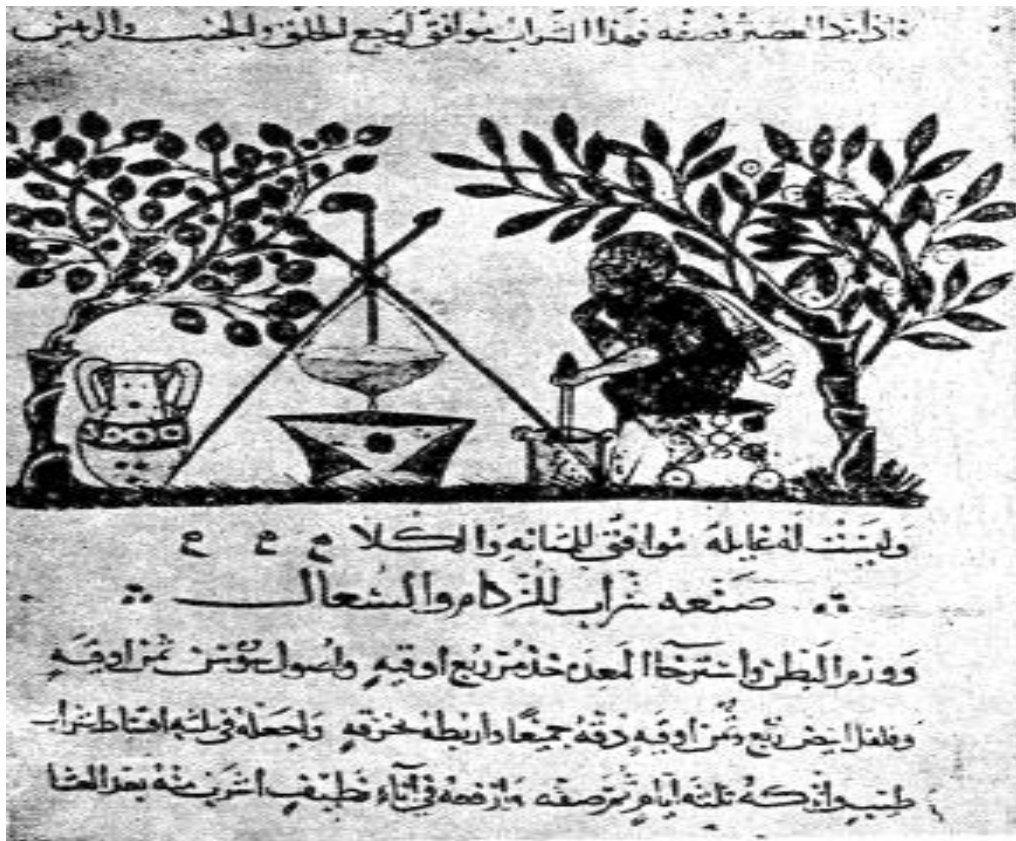 فاذا برد العصير فصفه فهذا الشراب موافق لوجع الحلق والجنب
وليست له غايلة موافق للمثانه والكلا ح ح ح
صنعه شراب للزكام والسعال
وورم البطن واسترخا المعده خذ مر ربع اوقيه واصول سوسن ثمن اوقيه
وفلفل ابيض ربع وثمن اوقيه دقه جميعا واربطه بخرقه واجعله في ثلثه اقساط شراب
طيب واتركه ثلثه ايام ثم صفه وارفعه في اناء نظيف اشرب منه بعد العشا